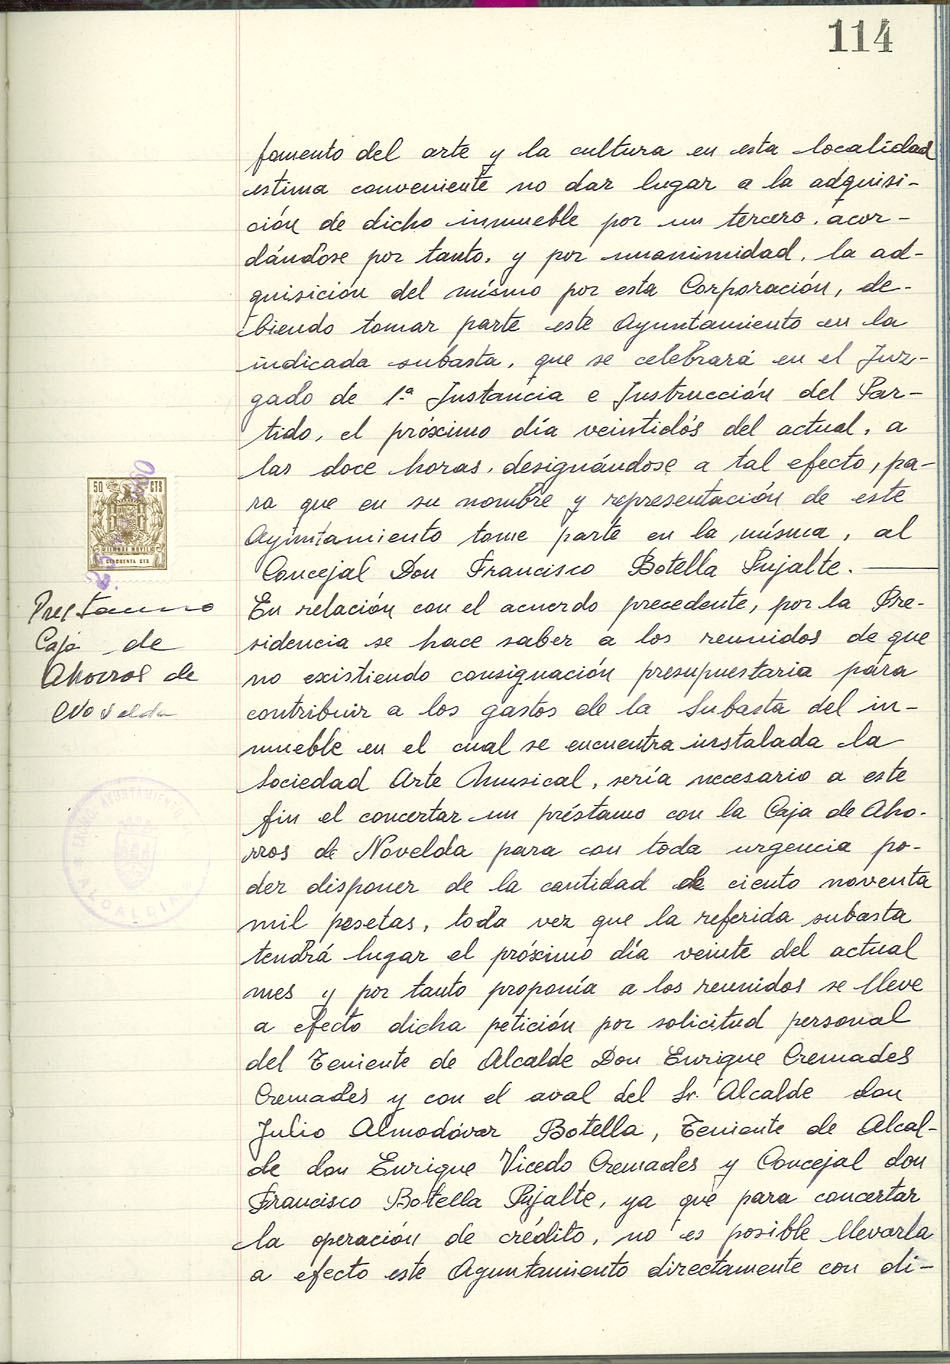 114
fomento del arte y la cultura en esta localidad
estima conveniente no dar lugar a la adquisi-
ción de dicho inmueble por un tercero, acor-
dándose por tanto, y por unanimidad, la ad-
quisición del mismo por esta Corporación, de-
biendo tomar parte este Ayuntamiento en la
indicada subasta, que se celebrará en el Juz-
gado de 1.ª Instancia e Instrucción del Par-
tido, el próximo día veintidós del actual, a
las doce horas, designándose a tal efecto, pa-
ra que en su nombre y representación de este
Ayuntamiento tome parte en la misma, al
Concejal Don Francisco Botella Pujalte.
50 CTS
TIMBRE MOVIL
CINCUENTA CTS
Prestamo
Caja de
Ahorros de
Novelda
En relación con el acuerdo precedente, por la Pre-
sidencia se hace saber a los reunidos de que
no existiendo consignación presupuestaria para
contribuir a los gastos de la Subasta del in-
mueble en el cual se encuentra instalada la
Sociedad Arte Musical, sería necesario a este
fin el concertar un préstamo con la Caja de Aho-
rros de Novelda para con toda urgencia po-
der disponer de la cantidad de ciento noventa
mil pesetas, toda vez que la referida subasta
tendrá lugar el próximo día veinte del actual
mes y por tanto proponía a los reunidos se lleve
a efecto dicha petición por solicitud personal
del Teniente de Alcalde Don Enrique Cremades
Cremades y con el aval del Sr. Alcalde don
Julio Almodóvar Botella, Teniente de Alcal-
de don Enrique Vicedo Cremades y Concejal don
Francisco Botella Pujalte, ya que para concertar
la operación de crédito, no es posible llevarla
a efecto este Ayuntamiento directamente con di-
AYUNTAMIENTO
ALCALDIA